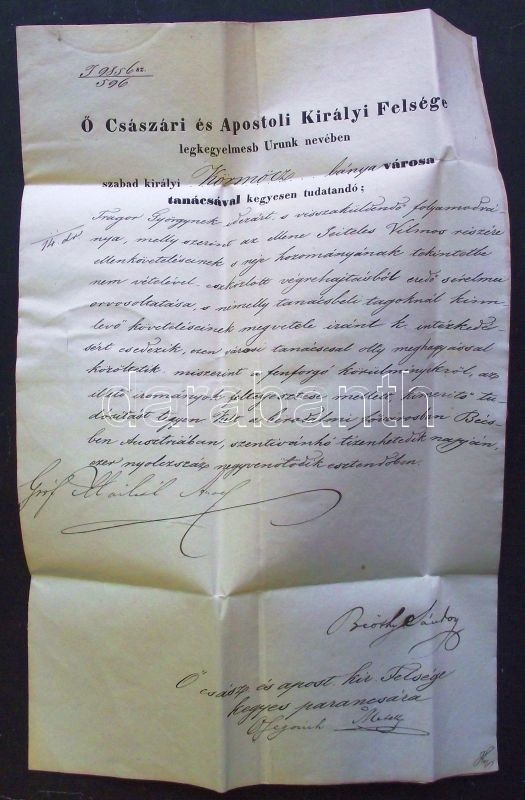 9856 sz.
596
Ő Császári és Apostoli Királyi Felsége
legkegyelmesb Urunk nevében
szabad királyi Körmöcz bánya városa
tanácsával kegyesen tudatandó;
Györgynek idezárt, s visszaküldendő folyamodvá-
nya, melly szerint az ellene Vilmos részére
ellenköveteléseinek s neje hozományának tekintetbe
nem vételével végrehajtásból eredő sérelmei
orvosoltatása, s némelly tanácsbeli tagoknál kinn-
levő követeléseinek megvétele iránt k. intézkedé-
sért esedezik, ezen városi tanácscsal olly meghagyással
közöltetik miszerint a fenforgó körülményekről, az
illető irományok mellett, tu-
dósítást tegyen. Kelt fővárosban Bécs-
ben Ausztriában, szentivánhó tizenhetedik napján,
ezer nyolczszáz negyvenötödik esztendőben.
darabanth
Gróf
Beöthy Sándor
Ő csász. és apost. kir Felsége
kegyes parancsára